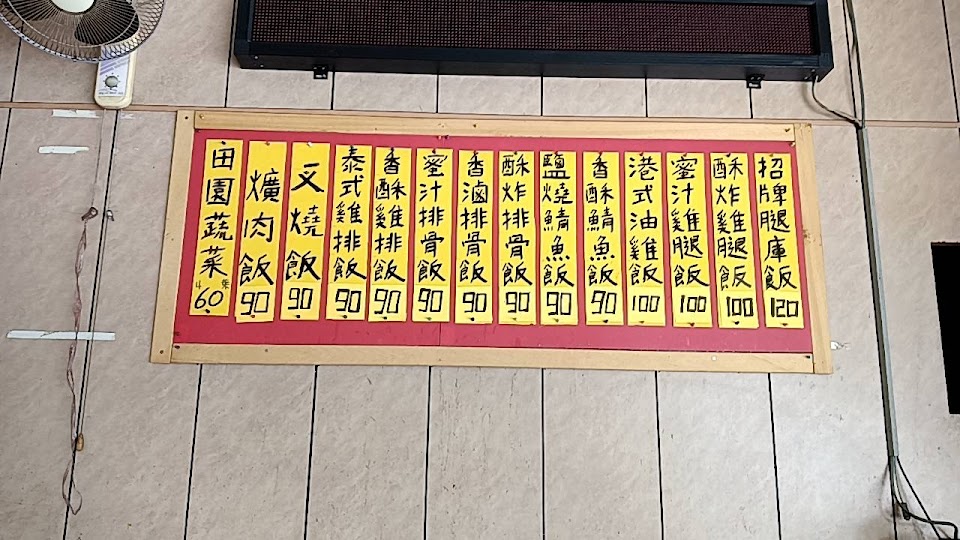 招牌腿庫飯 120
酥炸雞腿飯 100
蜜汁雞腿飯 100
港式油雞飯 100
香酥鯖魚飯 90
鹽燒鯖魚飯 90
酥炸排骨飯 90
香滷排骨飯 90
蜜汁排骨飯 90
香酥雞排飯 90
泰式雞排飯 90
叉燒飯 90
爌肉飯 90
田園蔬菜 60